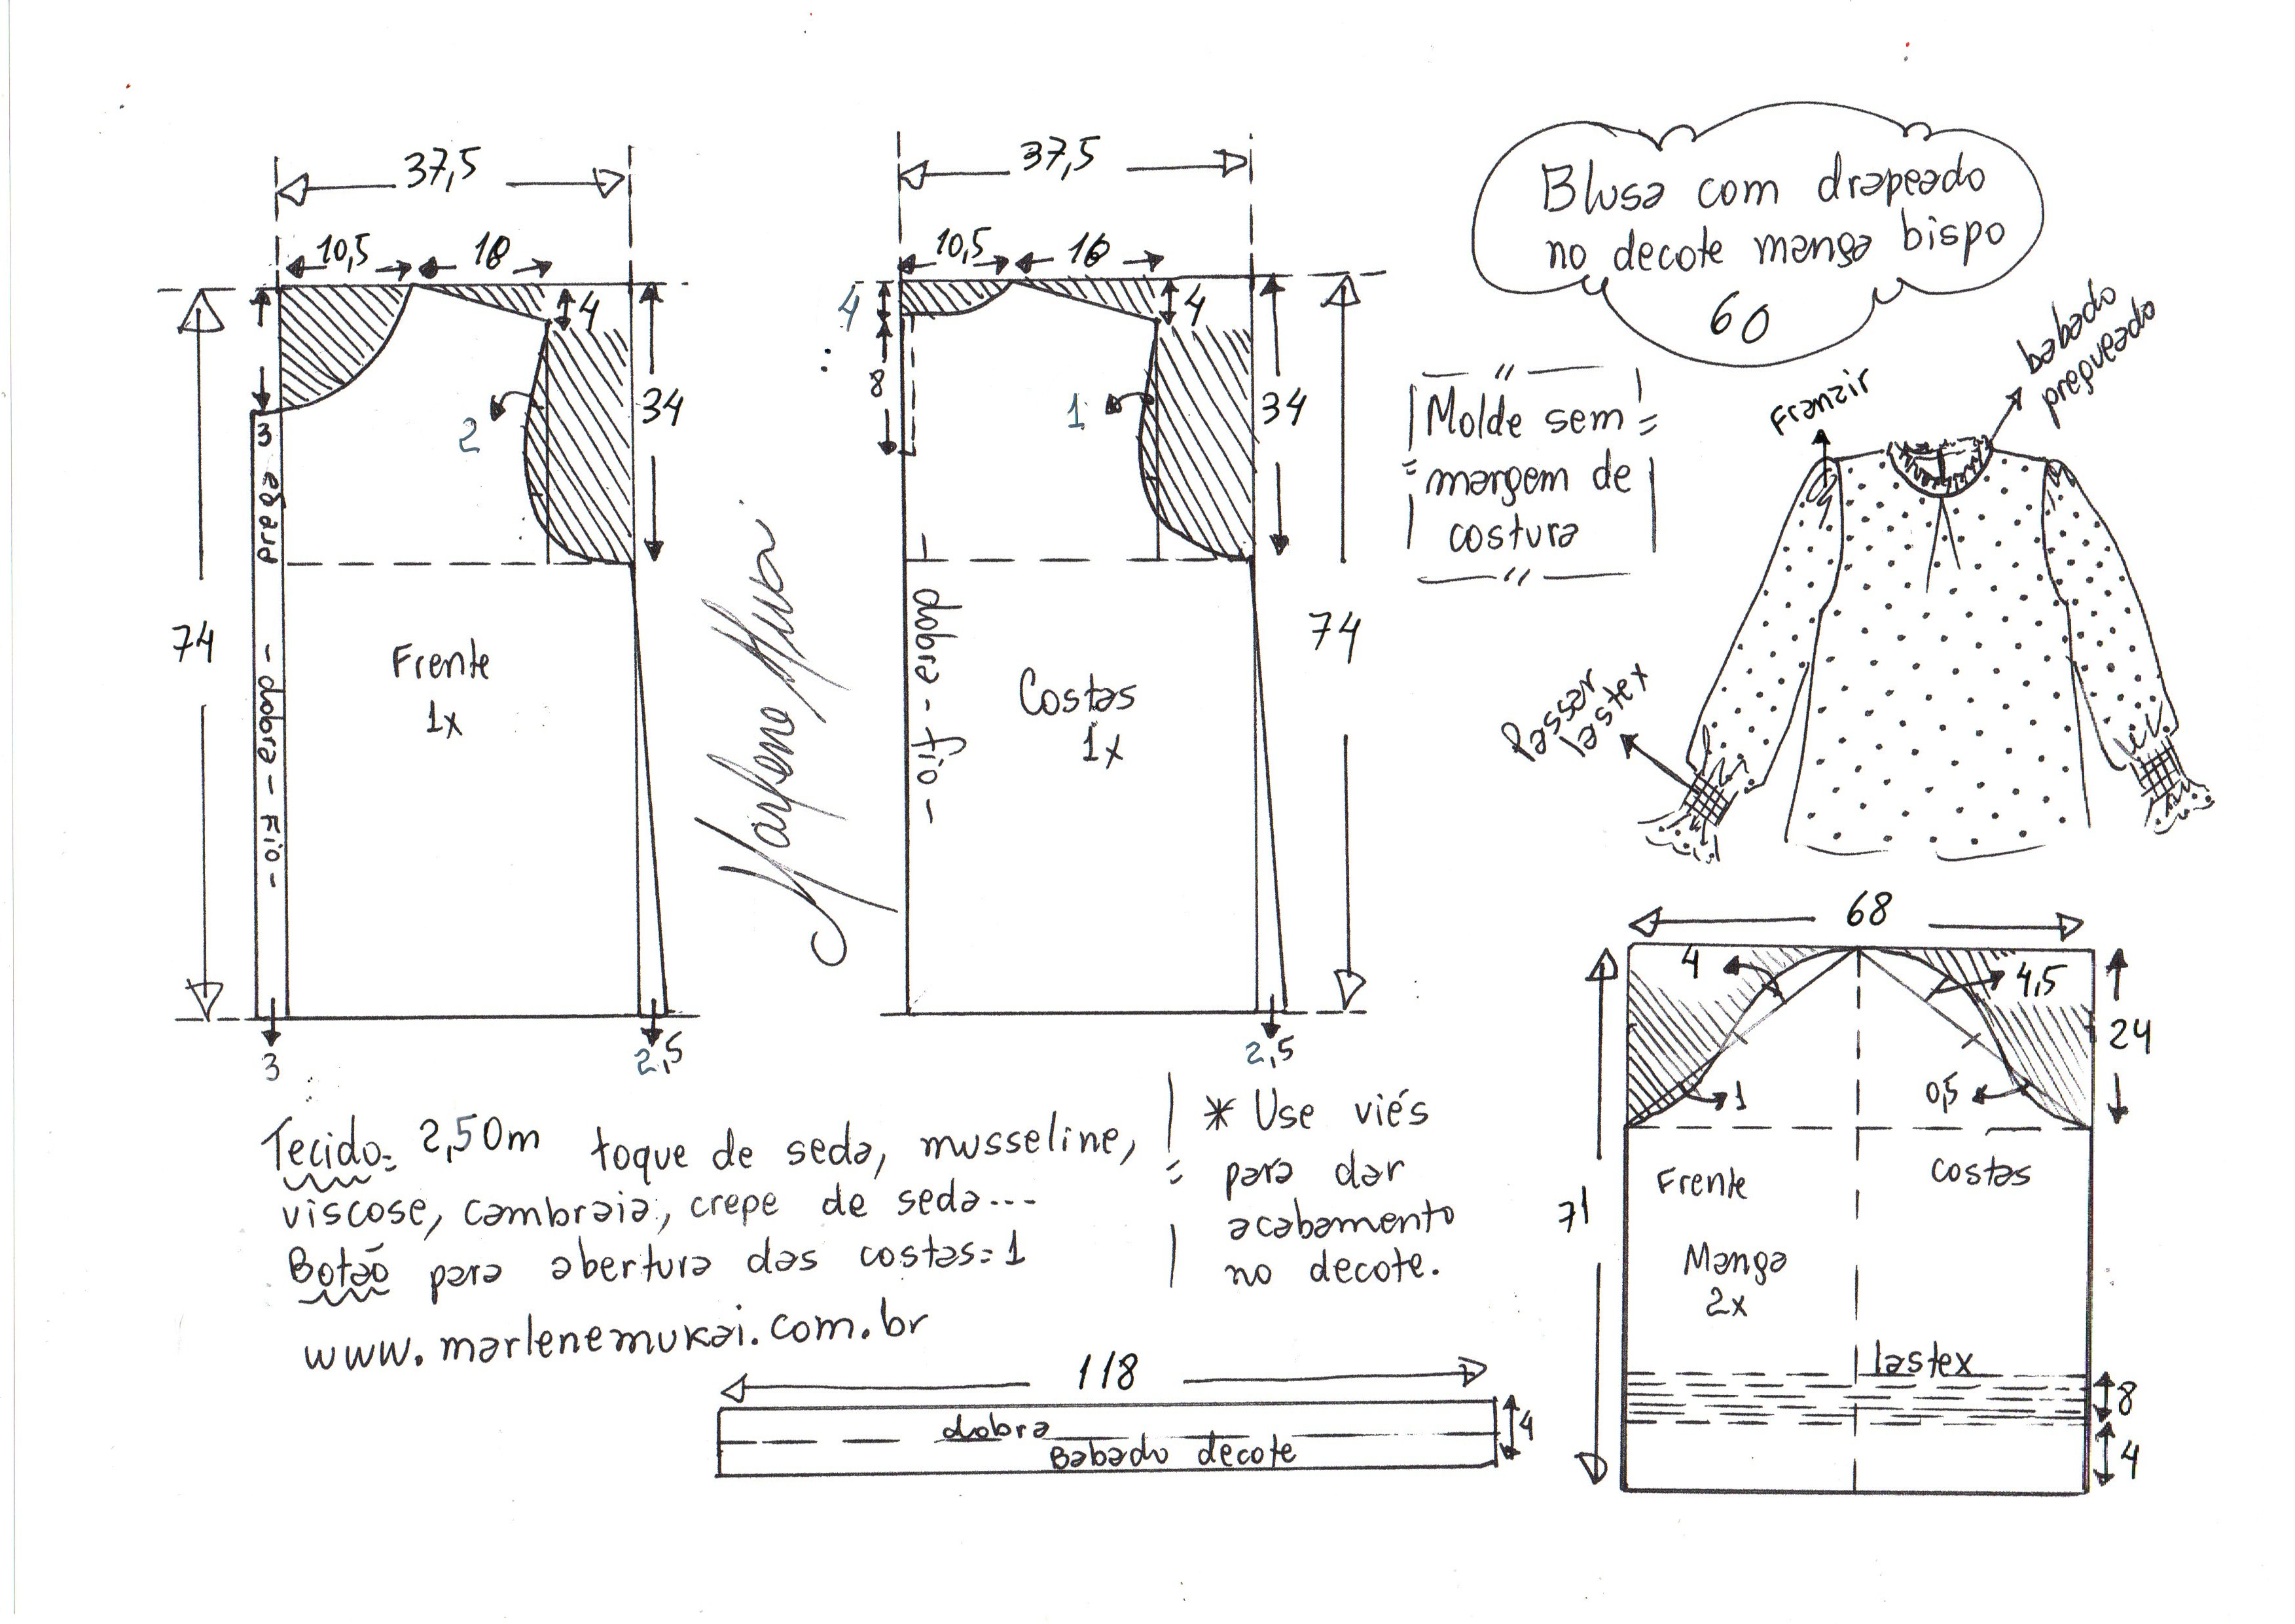 37,5
10,5
4
34
3
prega
2
74
- dobra - Fio -
Frente
1x
3
2,5
37,5
10,5
16
4
4
8
1
34
74
dobra - fio -
Costas
1x
2,5
Marlene Mukai
Blusa com drapeado
no decote manga bispo
60
Molde sem
margem de
costura
Franzir
babado
pregueado
Passar
lastex
68
4
4,5
24
1
0,5
Frente
costas
71
Manga
2x
lastex
8
4
Tecido= 2,50m toque de seda, musseline,
viscose, cambraia, crepe de seda---
Botão para abertura das costas=1
www.marlenemukai.com.br
* Use viés
para dar
acabamento
no decote.
118
dobra
Babado decote
4